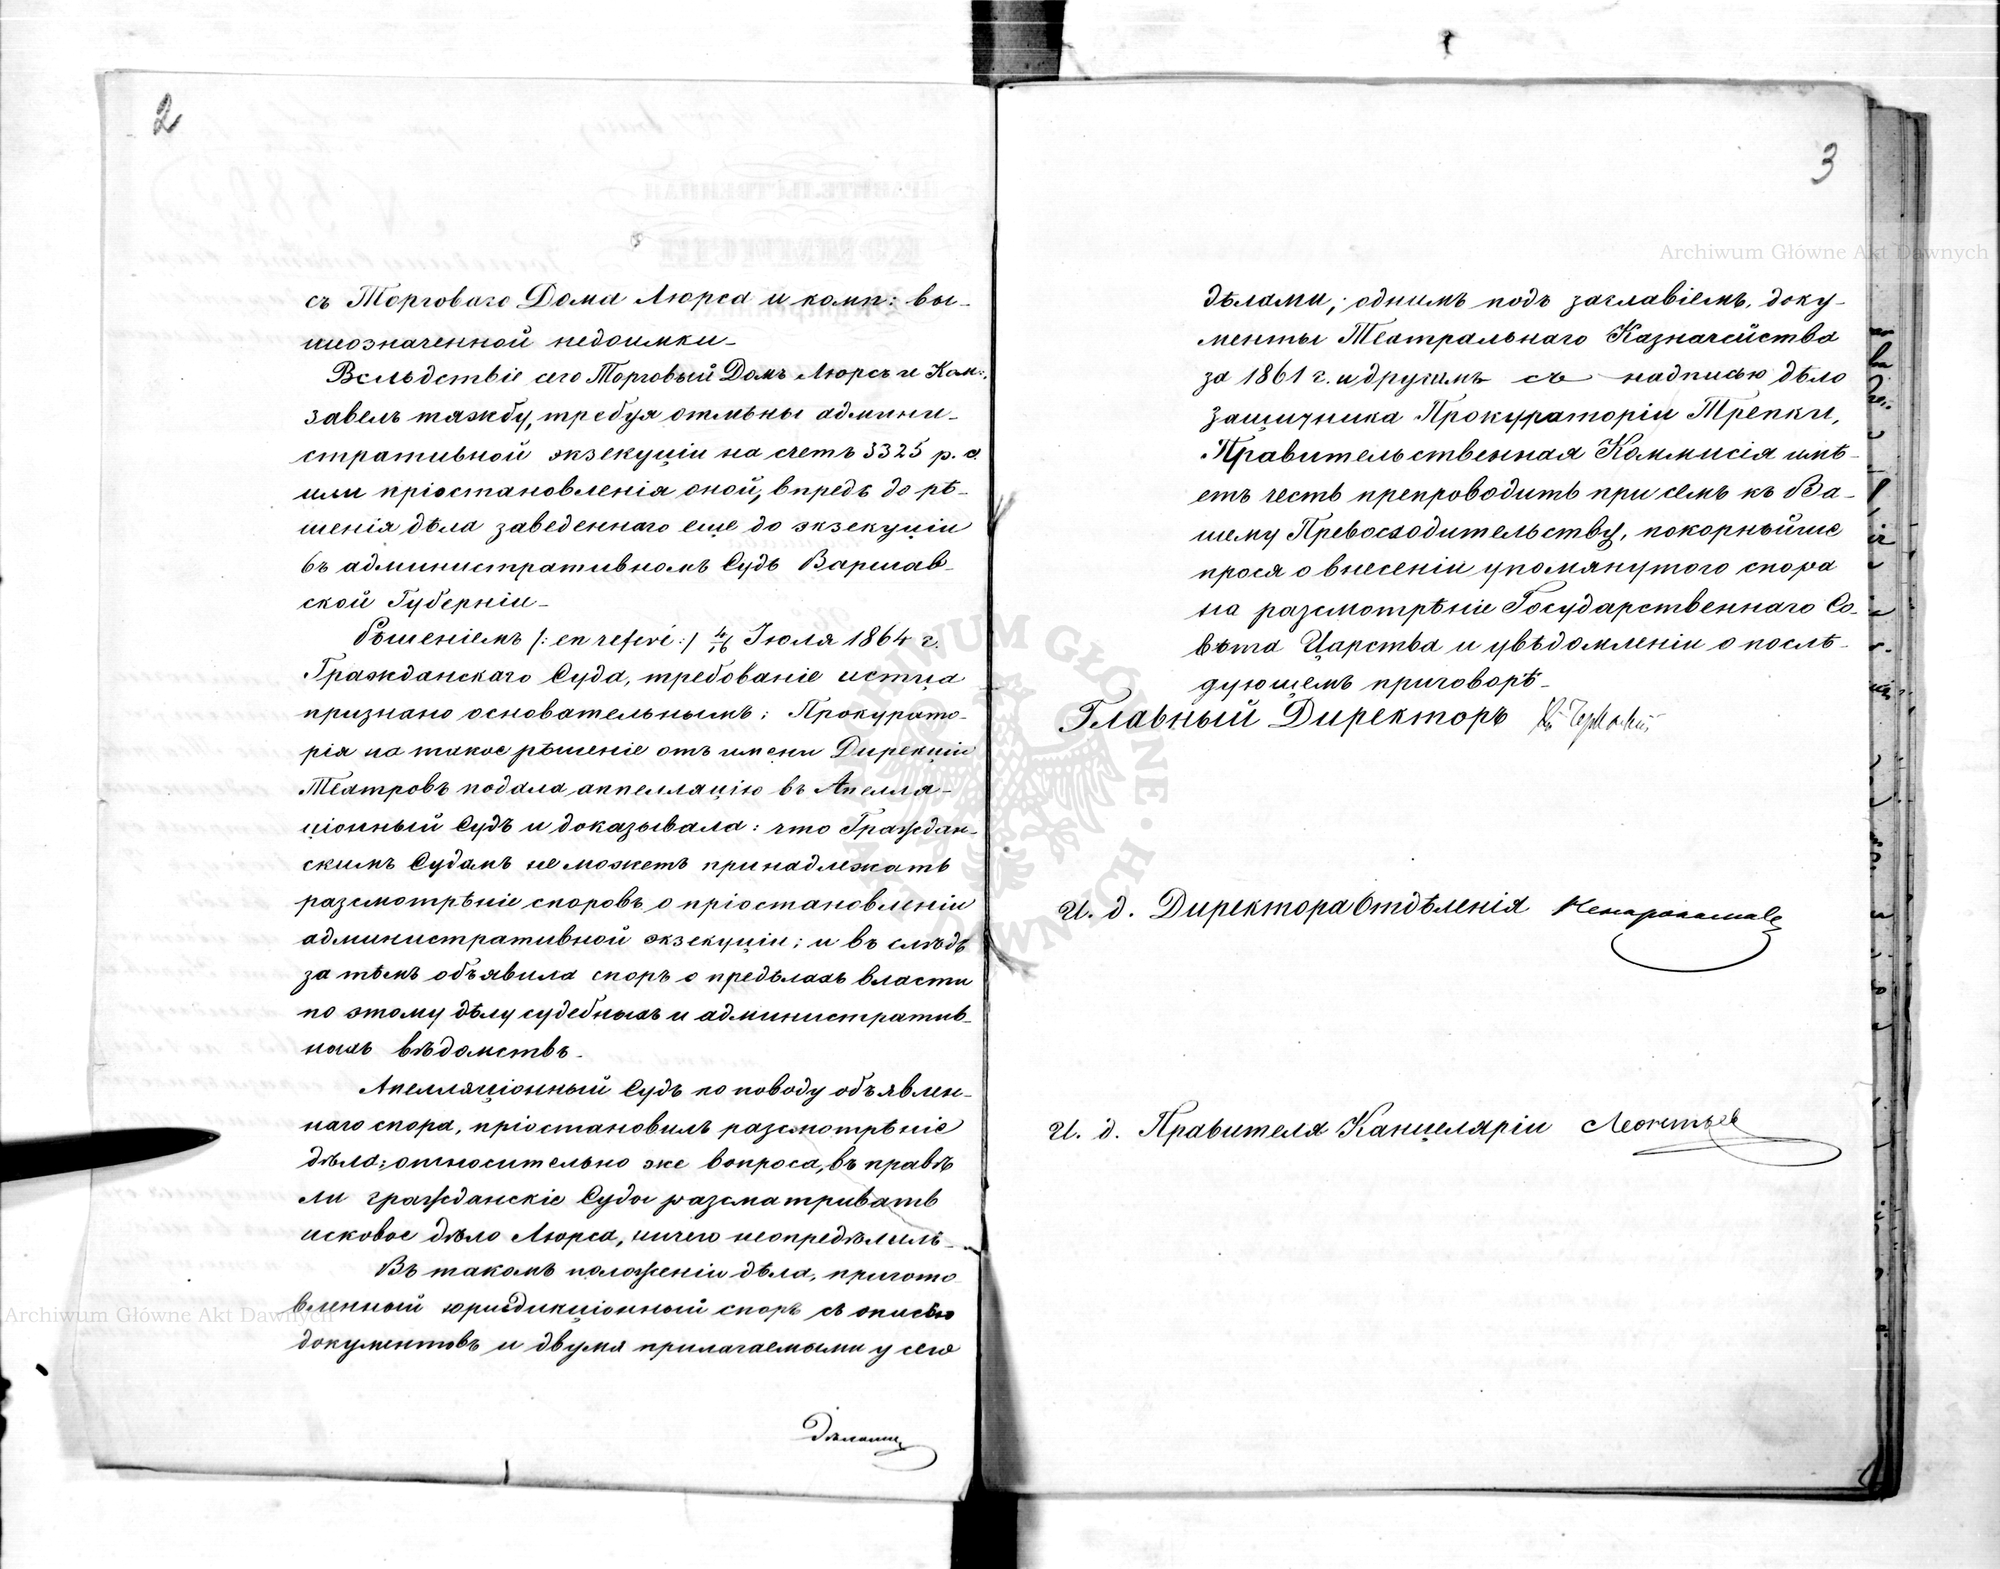 2
съ Торговаго Дома Люрса и комп: вы-
шеозначенной недоимки_
Вслѣдствіе сего Торговый Домъ Люрсъ и Ком:,
завелъ тяжбу, требуя отмѣны админи-
стративной экзекуціи на счетъ 3325 р. с.
или пріостановленія оной, впредь до рѣ-
шенія дѣла заведеннаго еще до экзекуціи
въ административномъ Судѣ Варшав-
ской Губерніи_
Рѣшеніемъ /: en referé :/ 4/16 Іюля 1864 г.
Гражданскаго Суда, требованіе истца
признано основательнымъ; Прокурато-
рія на такое рѣшеніе отъ имени Дирекціи
Театровъ подала аппелляцію въ Апелля-
ціонный Судъ и доказывала: что Граждан-
скимъ Судамъ не можетъ принадлежать
разсмотрѣніе споровъ о пріостановленіи
административной экзекуціи; и въ слѣдъ
за тѣмъ объявила споръ о предѣлахъ власти
по этому дѣлу судебныхъ и административ-
ныхъ вѣдомствъ_
Апелляціонный Судъ по поводу объявлен-
наго спора, пріостановилъ разсмотрѣніе
дѣла; относительно же вопроса, въ правѣ
ли гражданскіе Суды разсматривать
исковое дѣло Люрса, ничего неопредѣлилъ_
Въ такомъ положеніи дѣла, пригото-
вленный юрисдикціонный споръ съ описью
документовъ и двумя прилагаемыми у сего
дѣлами,
3
дѣлами; однимъ подъ заглавіемъ, доку-
менты Театральнаго Казначейства
за 1861 г. и другимъ съ надписью дѣло
защичника Прокураторіи Трепки,
Правительственная Коммисія имѣ-
етъ честь препроводить при семъ къ Ва-
шему Превосходительству, покорнѣйше
прося о внесеніи упомянутого спора
на разсмотрѣніе Государственнаго Со-
вѣта Царства и увѣдомленіи о послѣ-
дующемъ приговорѣ_
Главный Директоръ
И. д. Директора Отдѣленія
И. д. Правителя Канцеляріи Леонтьев
Archiwum Główne Akt Dawnych
Archiwum Główne Akt Dawnych